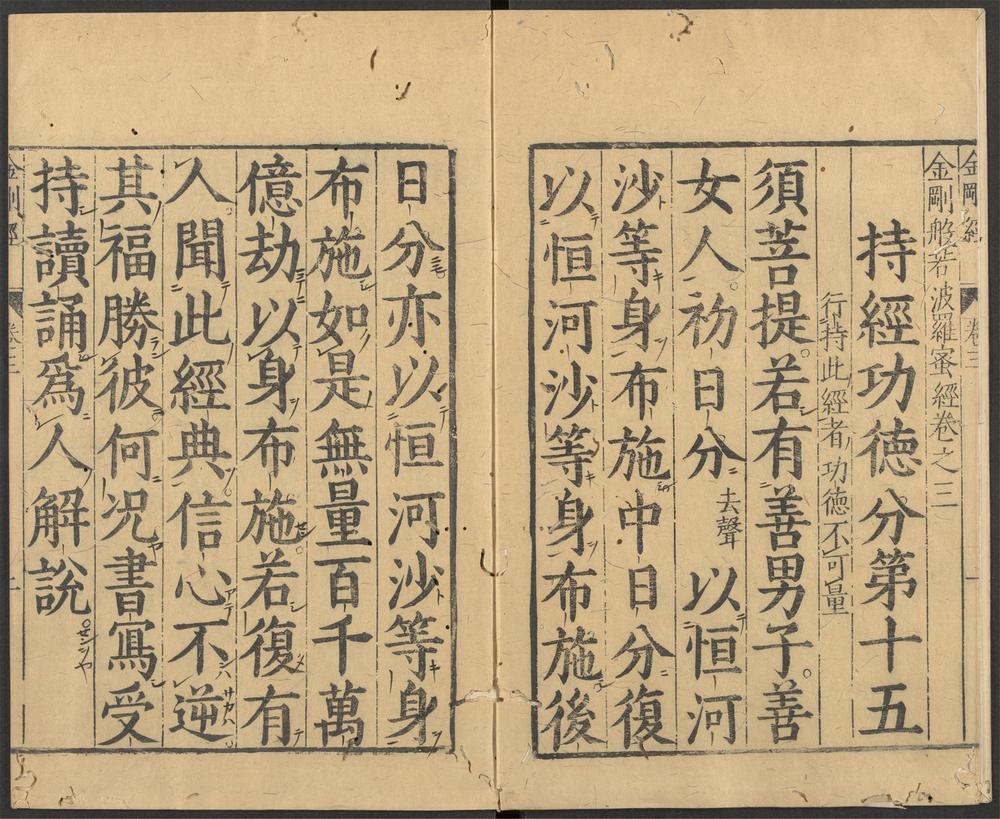 金剛經 卷三 一
金剛般若波羅蜜經卷之三
持經功德分第十五
行持此經者功德不可量
須菩提。若有善男子。善
女人。初日分去聲以恒河
沙等身布施中日分復
以恒河沙等身布施後
日分亦以恒河沙等身
布施如是無量百千萬
億劫以身布施。若復有
人。聞此經典。信心不逆
其福勝彼何况書寫受
持讀誦爲人解說
金剛經 卷三